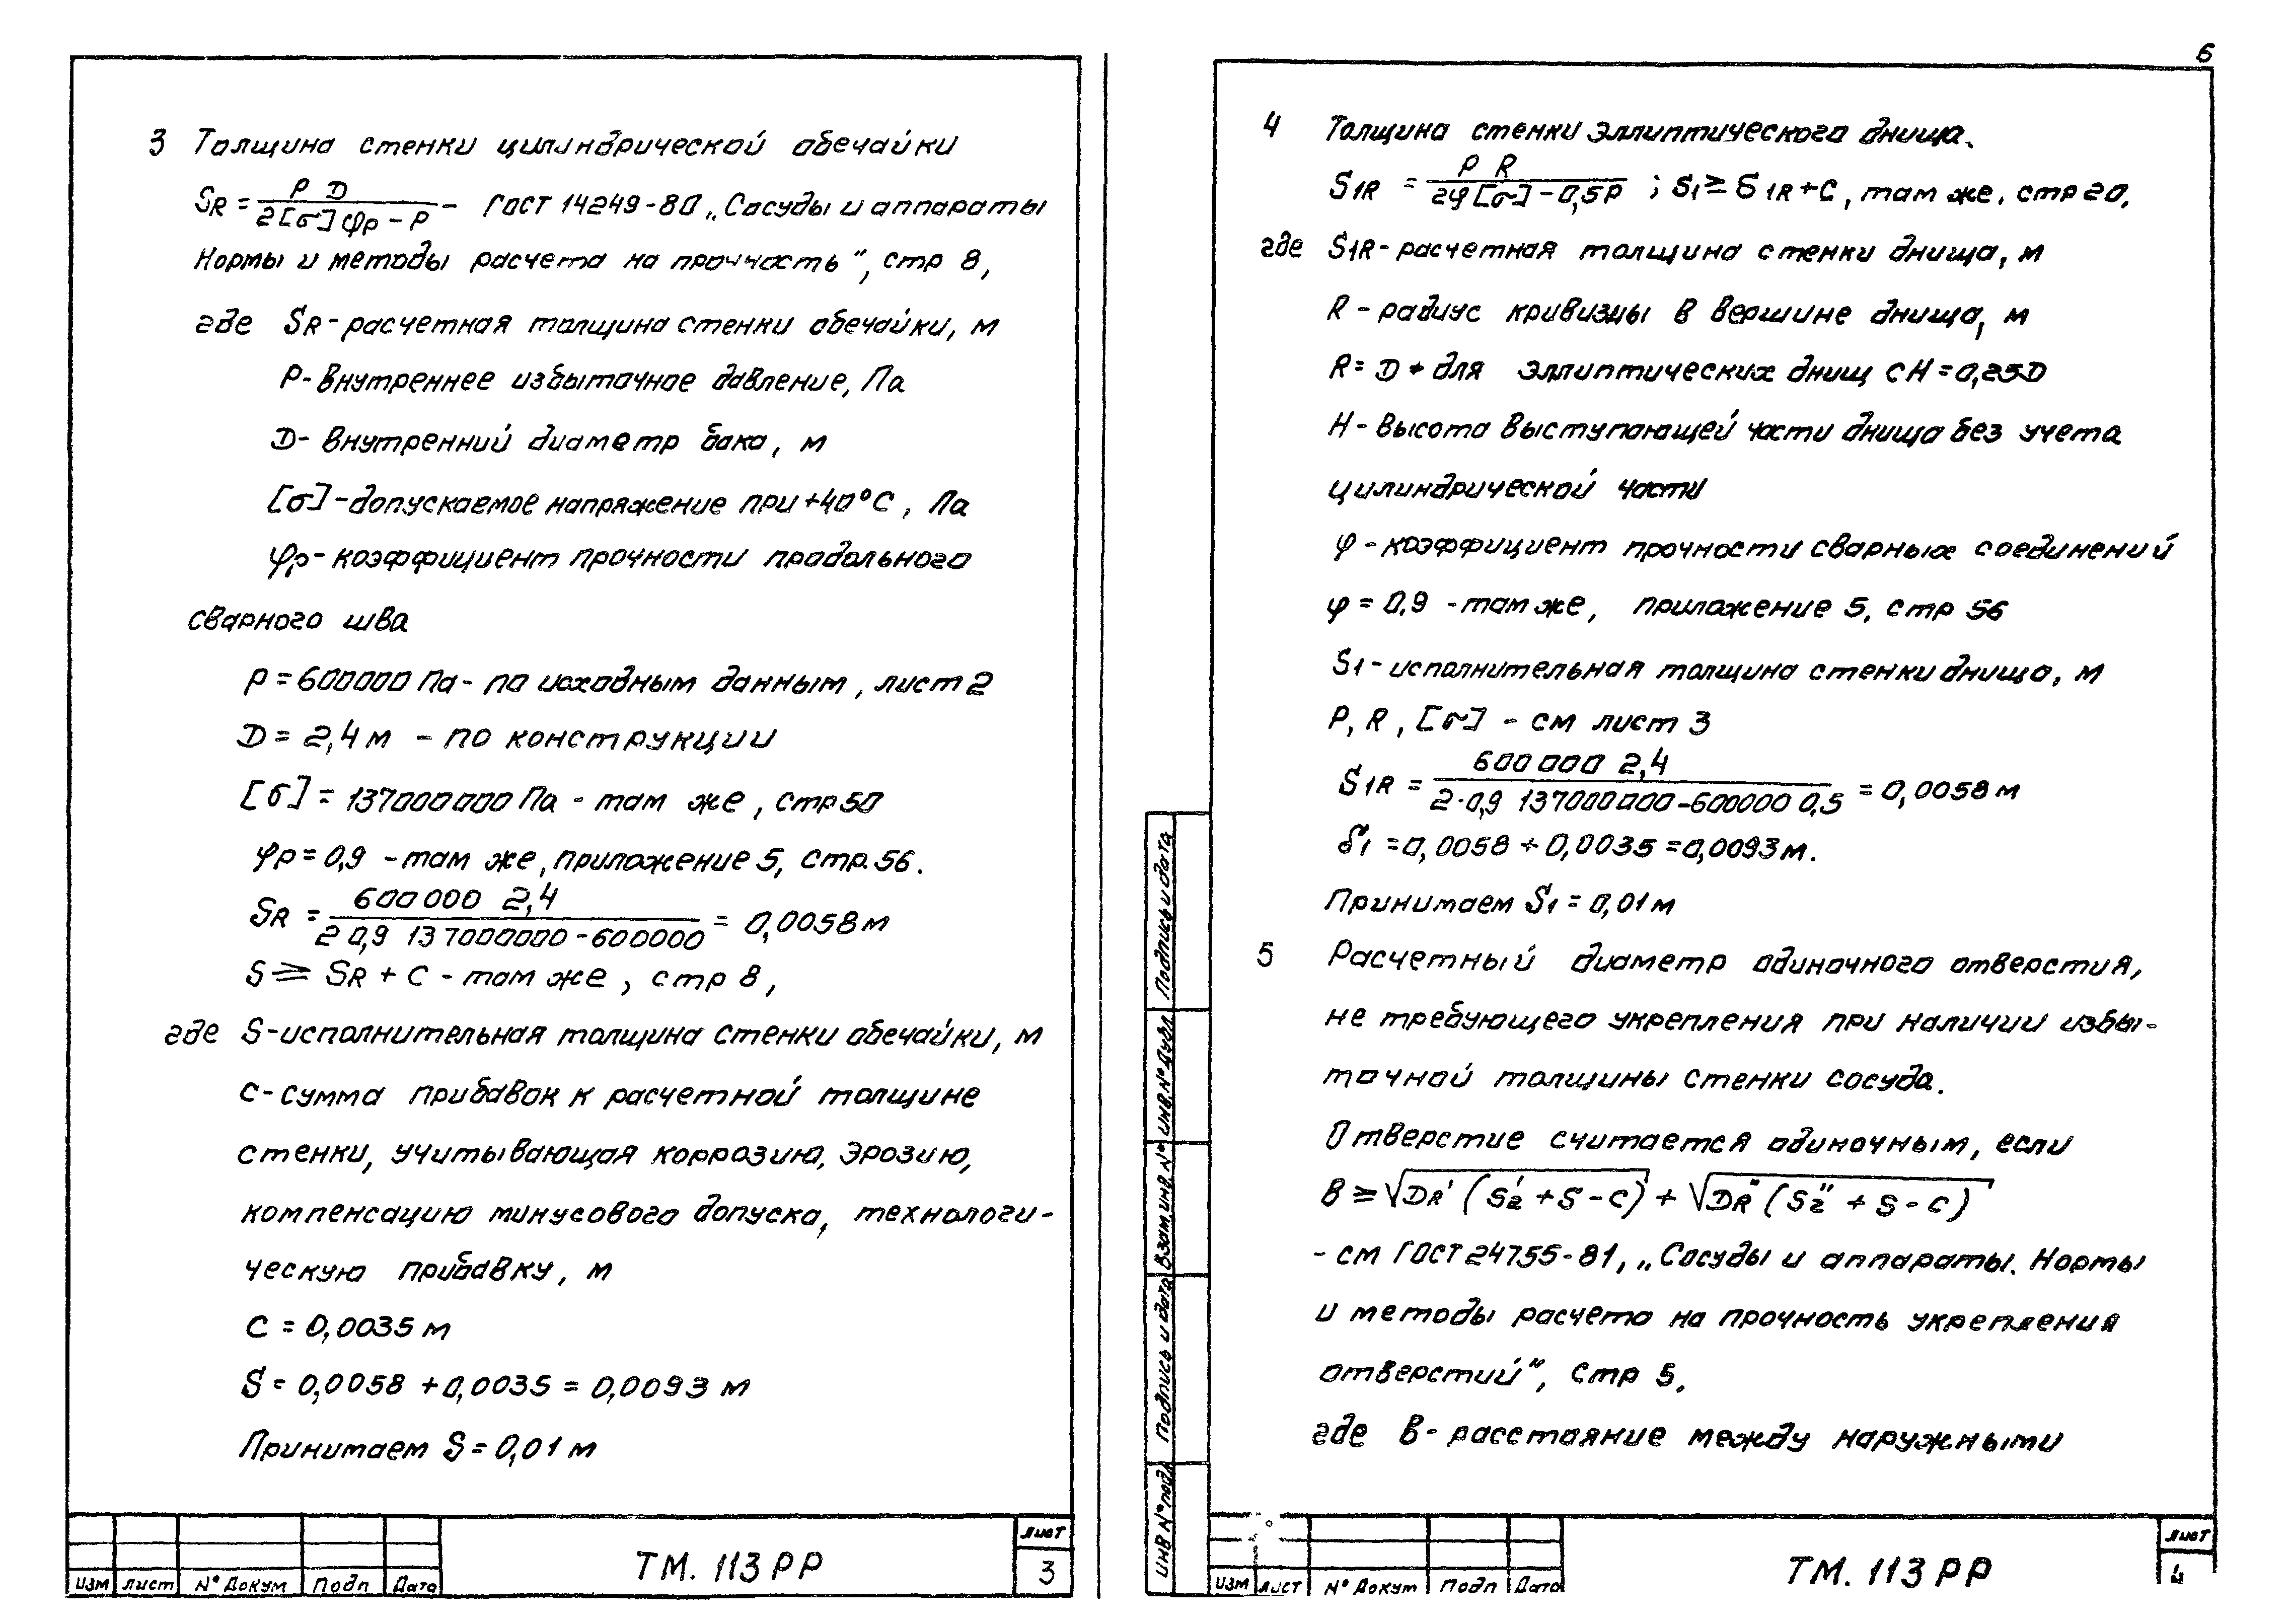 3 Толщина стенки цилиндрической обечайки
SR = P D / 2[σ] φp - P - ГОСТ 14249-80 „Сосуды и аппараты
Нормы и методы расчета на прочность", стр 8,
где SR - расчетная толщина стенки обечайки, м
P - внутреннее избыточное давление, Па
D - внутренний диаметр бака, м
[σ] - допускаемое напряжение при +40°С, Па
φp - коэффициент прочности продольного
сварного шва
P = 600000 Па - по исходным данным, лист 2
D = 2,4 м - по конструкции
[σ] = 137000000 Па - там же, стр 50
φp = 0,9 - там же, приложение 5, стр. 56.
SR = 600 000 2,4 / 2 0,9 137000000 - 600000 = 0,0058 м
S ⩾ SR + C - там же, стр 8,
где S - исполнительная толщина стенки обечайки, м
С - сумма прибавок к расчетной толщине
стенки, учитывающая коррозию, эрозию,
компенсацию минусового допуска, технологи-
ческую прибавку, м
С = 0,0035 м
S = 0,0058 + 0,0035 = 0,0093 м
Принимаем S = 0,01 м
Изм Лист № Докум Подп Дата
ТМ. 113 РР
Лист
3
6
4 Толщина стенки эллиптического днища.
S1R = P R / 2φ[σ] - 0,5P ; S1 ⩾ S1R + C, там же, стр 20,
где S1R - расчетная толщина стенки днища, м
R - радиус кривизны в вершине днища, м
R = D • для эллиптических днищ с H = 0,25D
H - высота выступающей части днища без учета
цилиндрической части
φ - коэффициент прочности сварных соединений
φ = 0,9 - там же, приложение 5, стр 56
S1 - исполнительная толщина стенки днища, м
P, R, [σ] - см лист 3
S1R = 600 000 2,4 / 2·0,9 137000000 - 600000 0,5 = 0,0058 м
S1 = 0,0058 + 0,0035 = 0,0093 м.
Принимаем S1 = 0,01 м
5 Расчетный диаметр одиночного отверстия,
не требующего укрепления при наличии избы-
точной толщины стенки сосуда.
Отверстие считается одиночным, если
B ⩾ √DR' (S2' + S - C) + √DR" (S2" + S - C)
- см ГОСТ 24755-81, „Сосуды и аппараты. Нормы
и методы расчета на прочность укрепления
отверстий", стр 5,
где B - расстояние между наружными
Подпись и дата
Инв. № Дубл
Взам. инв. №
Подпись и дата
Инв № подл
Изм Лист № Докум Подп Дата
ТМ. 113 РР
Лист
4